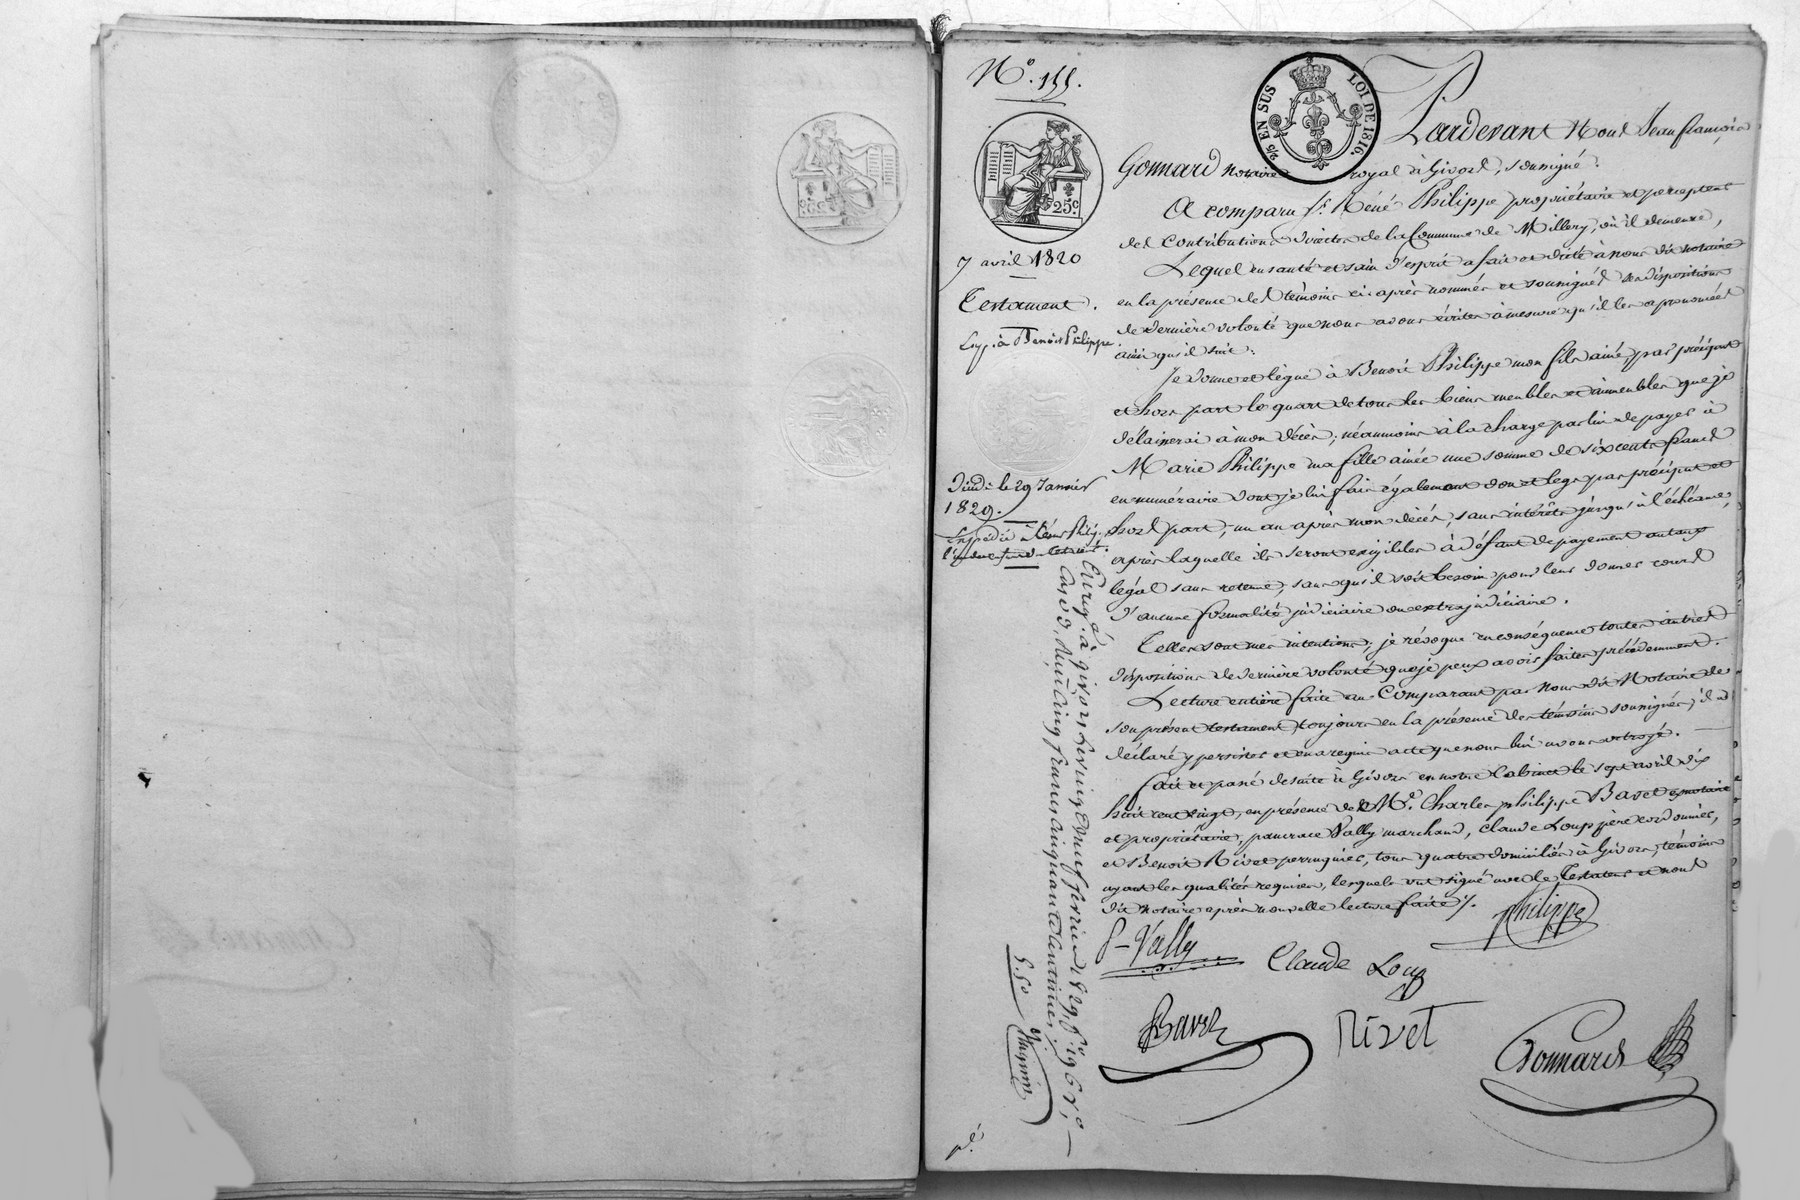 N.° 155.
2/5 EN SUS
LOI DE 1816.
25 c.
7 avril 1820
Testament.
Exp. à Benoit Philippe.
Jeudi le 29 Janvier
1829.
Expédié à René Phily.
Pardevant Nous Jean françois
Gonnard Notaire royal à Givors, soussigné.
A comparu S.r Réné Philippe propriétaire et percepteur
des contributions directes de la Commune de Millery, où il demeure,
Lequel en santé et sain d'esprit a fait et dicté à nous dit notaire
en la présence des témoins ci-après nommés et soussignés ses dispositions
de dernière volonté que nous avons écrites à mesure qu'il les a prononcées
ainsi qu'il suit:
Je donne et lègue à Benoit Philippe mon fils ainé par préciput
et hors part le quart de tous les biens meubles et immeubles que je
délaisserai à mon décès; néanmoins à la charge par lui de payer à
Marie Philippe ma fille ainée une somme de six cents francs
en numéraire dont je lui fais également don et legs par préciput et
hors part, un an après mon décès, sans intérêts jusqu'à l'échéance,
après laquelle ils seront exigibles à défaut de payement au taux
légal sans retenue, sans qu'il soit besoin pour leur donner cours
d'aucune formalité judiciaire ou extrajudiciaire.
Telles sont mes intentions; je révoque en conséquence toutes autres
dispositions de dernière volonté que je peux avoir faites précédemment.
Lecture entière faite au Comparant par Nous dit Notaire de
son présent testament, toujours en la présence des témoins soussignés; il a
déclaré y persister et en a requis acte que nous lui avons octroyé.
fait et passé de suite à Givors en notre Cabinet le sept avril dix
huit cent vingt, en présence de M.r Charles philippe Bavet exnotaire
et propriétaire, pancrace Vally marchand, Claude Loup père cordonnier,
et Benoit Rivet perruquier, tous quatre domiciliés à Givors, témoins
ayant les qualités requises, lesquels ont signé avec le Testateur et nous
dit notaire après nouvelle lecture faite /.
Philippe
P-Vally
Claude Loup
Bavet
Rivet
Gonnard
Enreg. à givors le vingt neuf février 1829, f.o 196 r.o
Reçu cinq francs cinquante centimes
5.50